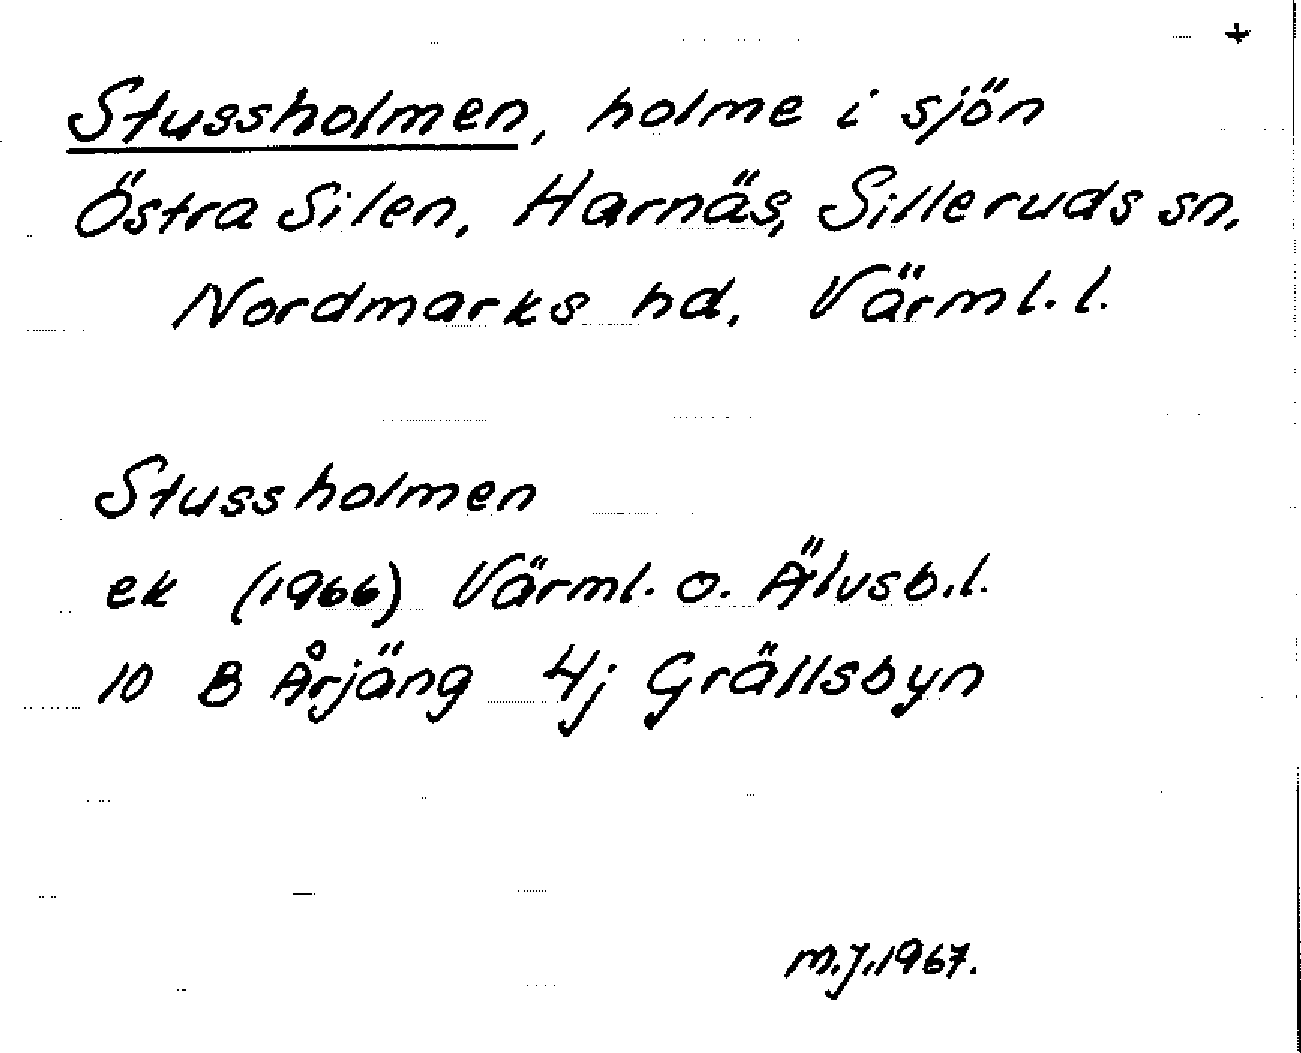 +
Stussholmen, holme i sjön
Östra Silen, Harnäs, Silleruds sn,
Nordmarks hd, Värml. l.
Stussholmen
ek (1966) Värml. o. Älvsb. l.
10 B Årjäng 4j Grällsbyn
M.J. 1967.